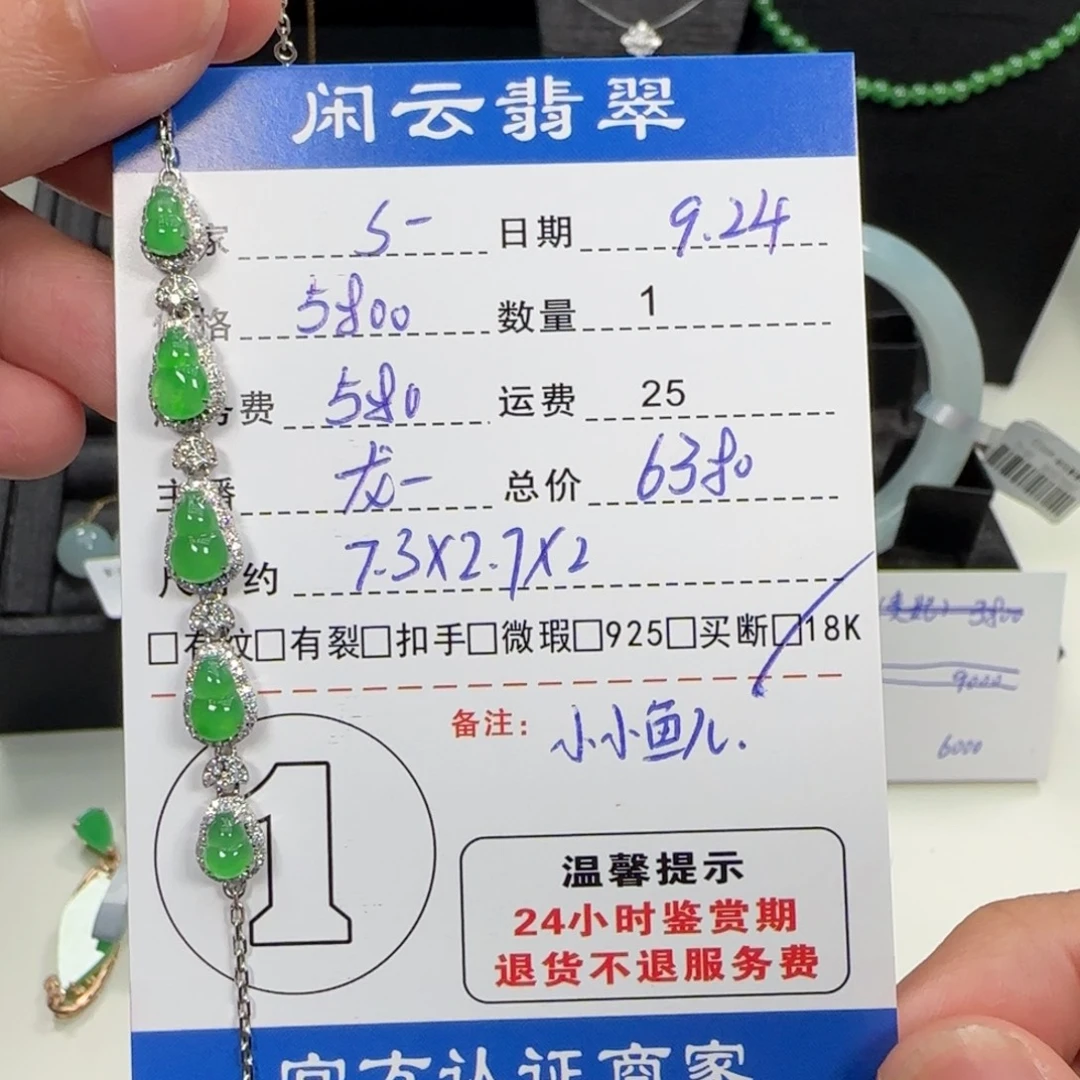 闲云翡翠
家 S一 日期 9.24
格 5800 数量 1
务费 580 运费 25
主播 龙一 总价 6380
尺寸约 7.3X2.7X2
□有纹□有裂□扣手□微瑕□925□买断□18K
备注: 小小鱼儿.
1
温馨提示
24小时鉴赏期
退货不退服务费
官方认证商家
3800
9000
6000